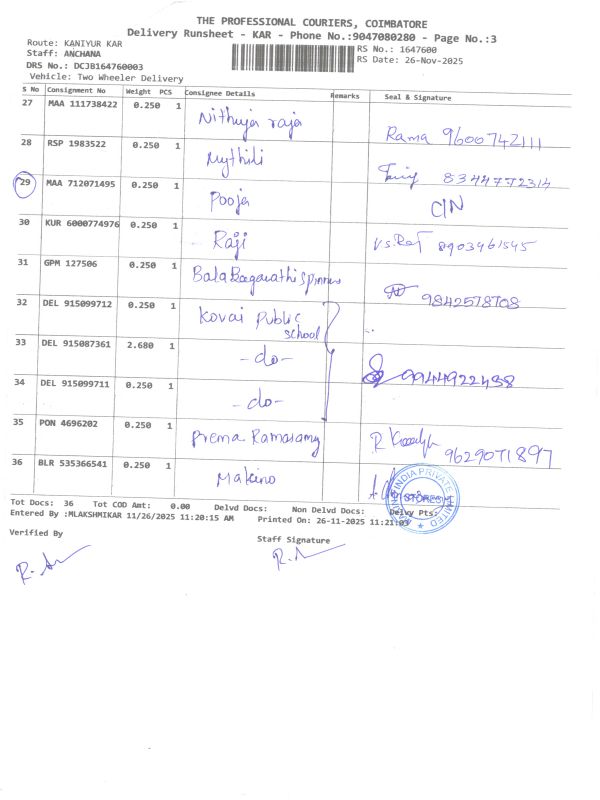 THE PROFESSIONAL COURIERS, COIMBATORE
Delivery Runsheet - KAR - Phone No.:9047080280 - Page No.:3
Route: KANIYUR KAR
RS No.: 1647600
Staff: ANCHANA
RS Date: 26-Nov-2025
DRS No.: DCJB164760003
Vehicle: Two Wheeler Delivery
S No Consignment No Weight PCS Consignee Details Remarks Seal & Signature
27 MAA 111738422 0.250 1 Nithuja raja Rama 9600742111
28 RSP 1983522 0.250 1 Mythili 8344772314
29 MAA 712071495 0.250 1 Pooja C/N
30 KUR 6000774976 0.250 1 Raji V.S.Raj 8903461545
31 GPM 127506 0.250 1 Bala Bagavathi Spinners 9842578708
32 DEL 915099712 0.250 1 Kovai Public school
33 DEL 915087361 2.680 1 - do - 9944922458
34 DEL 915099711 0.250 1 - do -
35 PON 4696202 0.250 1 Prema Ramasamy 9629071897
36 BLR 535366541 0.250 1 Makino STORES INDIA PRIVATE LIMITED
Tot Docs: 36 Tot COD Amt: 0.00 Delvd Docs: Non Delvd Docs: Delvy Pts:
Entered By :MLAKSHMIKAR 11/26/2025 11:20:15 AM Printed On: 26-11-2025 11:21:03
Verified By
Staff Signature